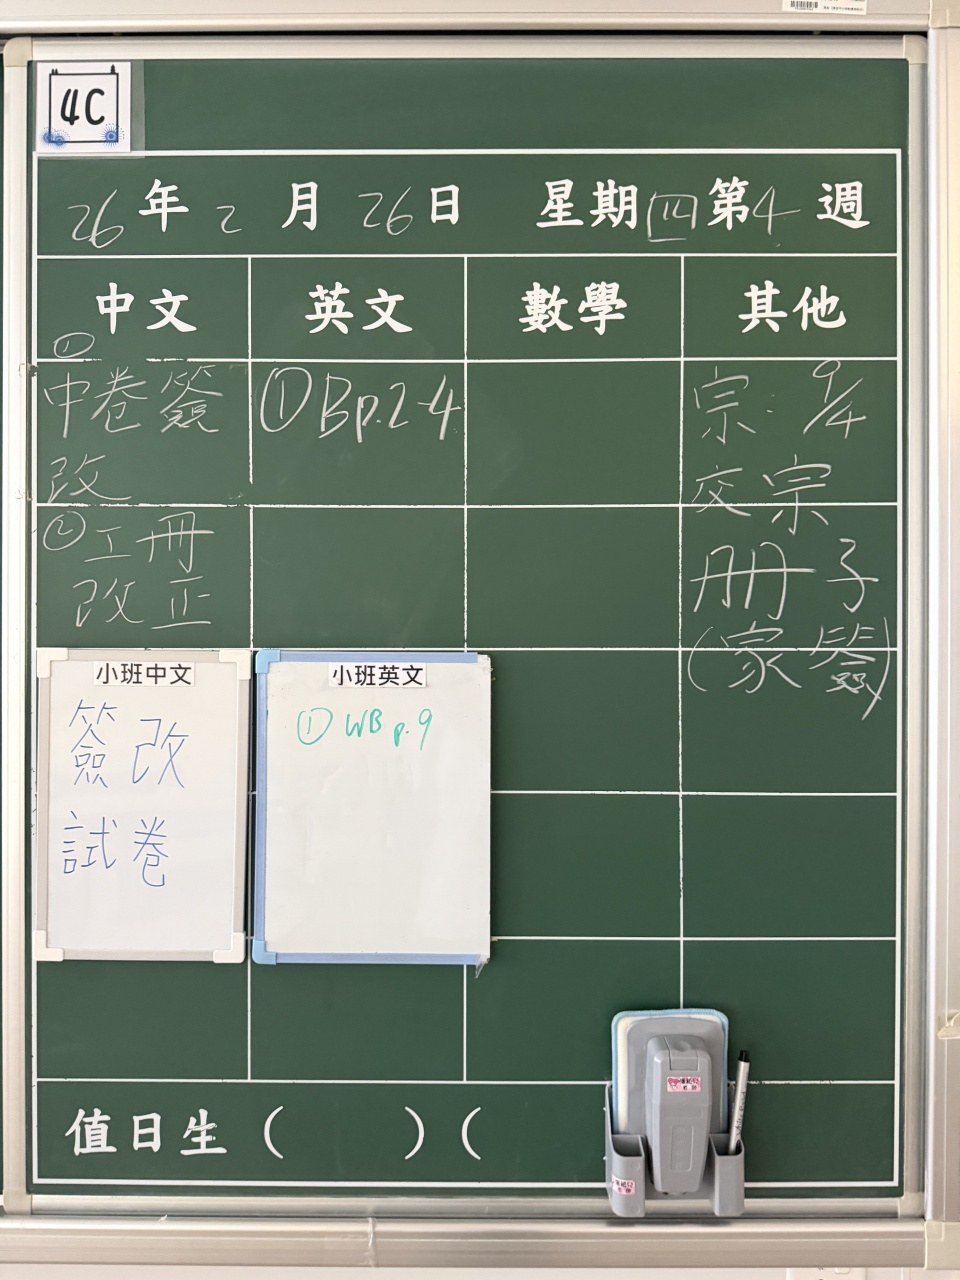 4C
26年2月26日 星期四第4週
中文 英文 數學 其他
①
中卷簽
改
②工冊
改正
①Bp.2-4
宗: 9/4
交宗
冊子
(家簽)
小班中文
簽改
試卷
小班英文
① WB p.9
值日生( )(